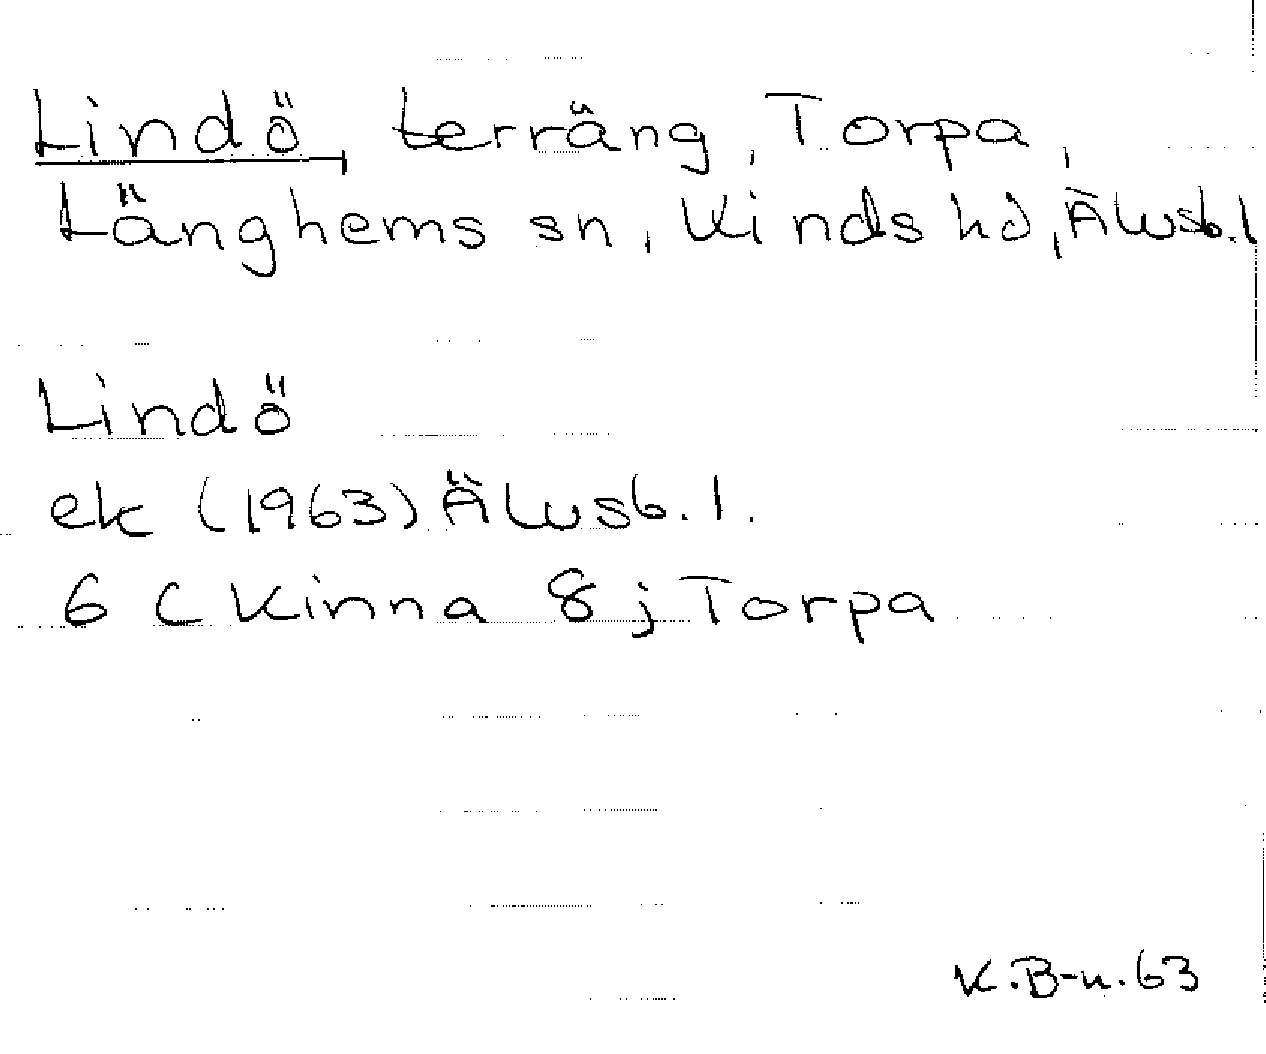 Lindö, terräng, Torpa,
Länghems sn, Kinds hd, Älvsb.l
Lindö
ek (1963) Älvsb.l.
6 C Kinna 8 j Torpa
K.B-n.63